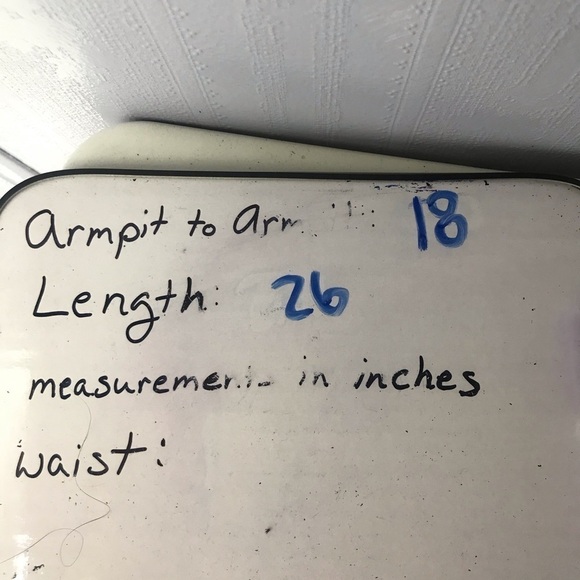 armpit to arm 18
Length: 26
measurements in inches
waist: